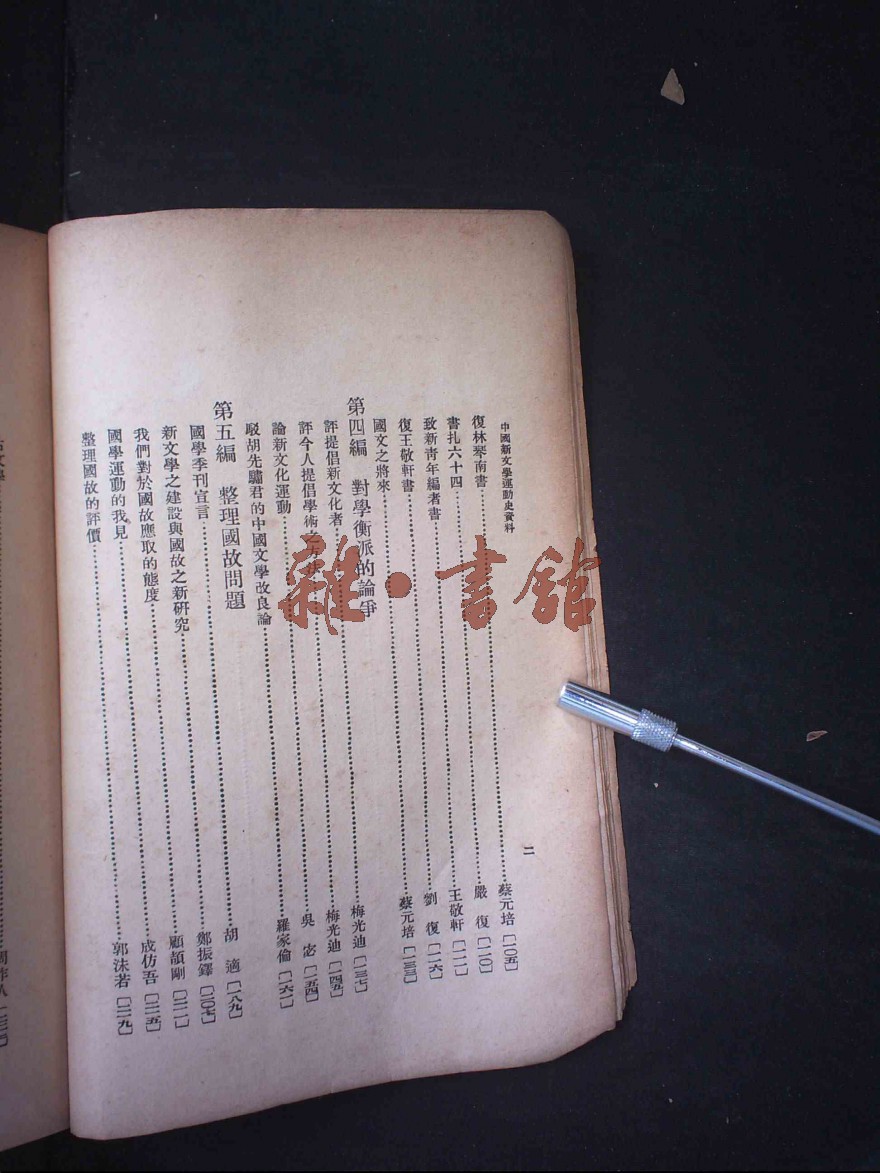 中國新文學運動史資料
二
復林琴南書……蔡元培〔一〇五〕
書扎六十四……嚴　復〔一一〇〕
致新青年編者書……王敬軒〔一一一〕
復王敬軒書……劉　復〔一一六〕
國文之將來……蔡元培〔一三三〕
第四編　對學衡派的論爭
評提倡新文化者……梅光迪〔一三七〕
評今人提倡學術之方法……梅光迪〔一四五〕
論新文化運動……吳　宓〔一五四〕
駁胡先驌君的中國文學改良論……羅家倫〔一六一〕
第五編　整理國故問題
國學季刊宣言……胡　適〔一八九〕
新文學之建設與國故之新研究……鄭振鐸〔二〇七〕
我們對於國故應取的態度……顧頡剛〔二一一〕
國學運動的我見……成仿吾〔二二五〕
整理國故的評價……郭沫若〔二二九〕
雜·書館